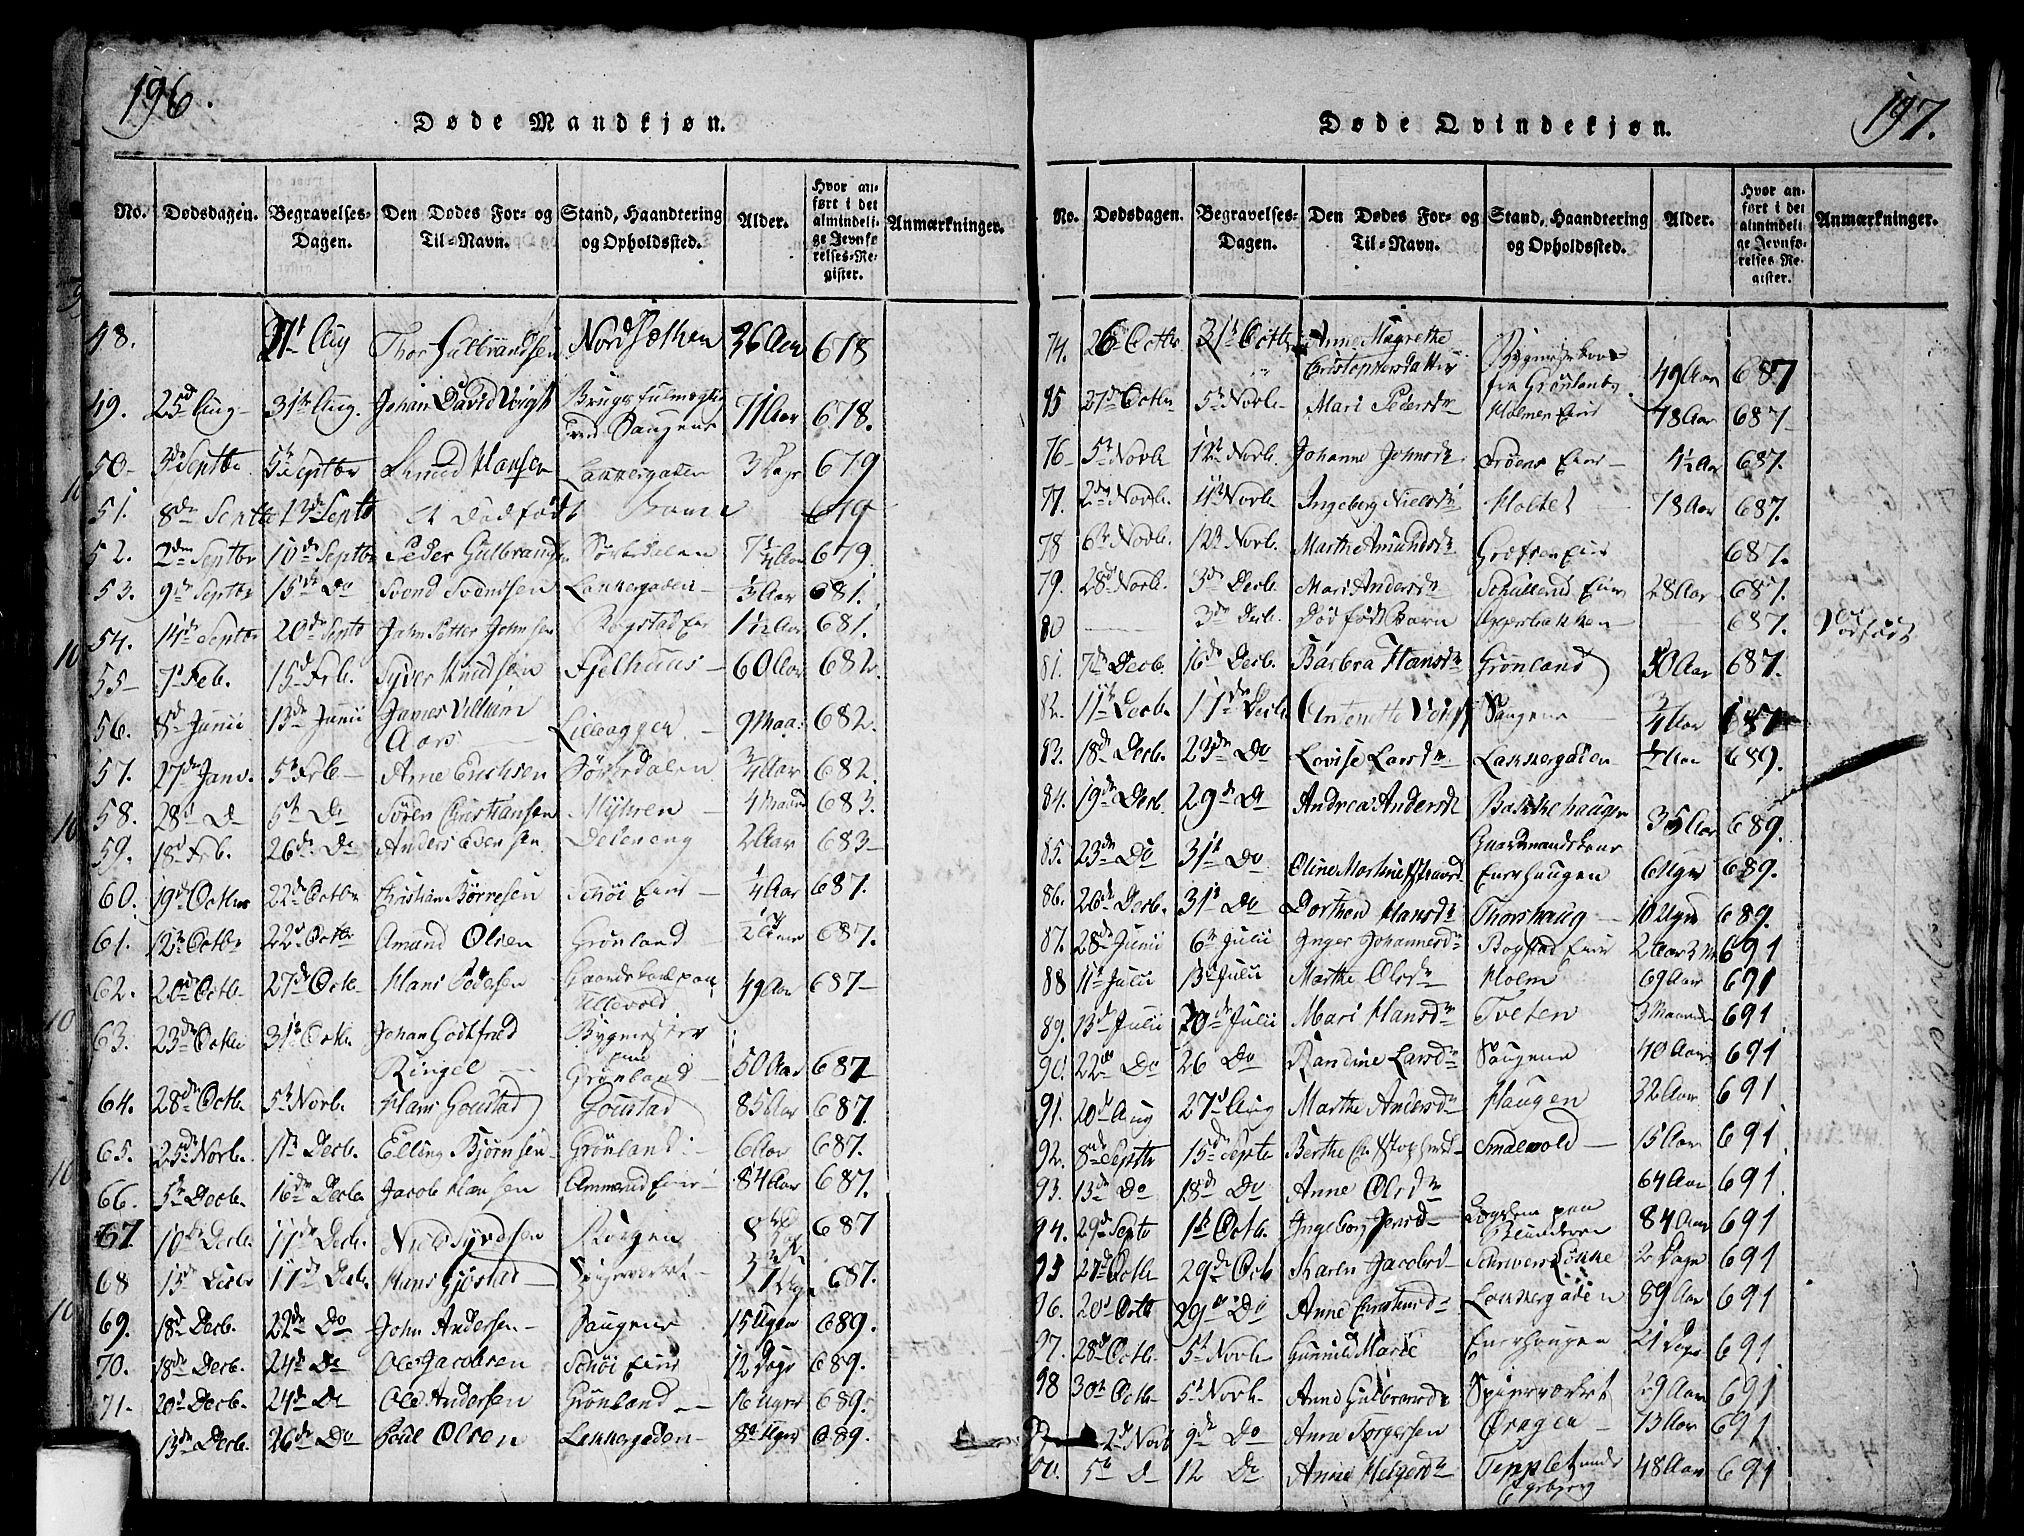 196.
Døde Mandkjøn.
No. Dødsdagen. Begravelses-Dagen. Den Dødes For- og Til-Navn. Stand, Haandtering og Opholdssted. Alder. Hvor anført i det almindelige Jevnførelses-Register. Anmærkninger.
48. Aug Thor Gulbrandsen 36 Aar 678
49. 25d Aug 31te Aug. Johan David Voigt 71 Aar 678.
50 3de Septbr 5te Septbr Knud Hansen Lakkergaden 3 Dage 679
51. 8de Septbr 13de Septb et Dødfødt Barn 679
52. 2den Septbr 10de Septbr Peder Gulbrands. Sørkedalen 679.
53. 9de Septbr 15de Do Svend Svendsen Lakkergaden Aar 681.
54. 14de Septbr 20de Septb John Petter Johnsen Bogstad Eier Aar 681.
55 7d Feb. 15d Feb. Syver Knudsen Fjelhuus 60 Aar 682.
56. 8d Junii 13de Junii James Villiam Aars Lilleaggen 9 Maa: 682.
57. 27de Janv. 5te Feb Arne Erichsen Sørkedalen 3/4 Aar 682.
58. 28d D 5te Do Søren Christiansen Myhren 4 Maan 683.
59. 18d Feb. 26de Do Anders Evensen Deleneng 2 Aar 683
60. 19de Octbr 22de Octbr Christian Børresen Schøi Eier 1/4 Aar 687.
61. 12te Octbr 22d Octbr Amund Olsen Grønland 687.
62. 20de Octb 27de Octb Hans Pedersen Gaardskarl paa Ullevold 49 Aar 687
63. 23de Octbr 31te Octb. Johan Gotfried Ringel Bygmester Grønland 50 Aar 687
64. 28de Octb. 5te Novb. Hans Goustad Goustad 85 Aar 687.
65. 25de Novb. 1te Decb. Elling Bjørnsen Grønland 6 Aar 687.
66. 5te Decb. 16de Decbr Jacob Hansen Ammerud Eier 84 Aar 687.
67. 10de Decb. 17de Decb. Niels Syvdsen Borgen 687
68 13de Decbr 17de Decb. Hans Gjøstad Spigerværket 687.
69. 18de Decb. 22de Do John Andersen Saugene 15 Uger 689.
70. 18de Decb. 24de Do Ole Jacobsen Schøi Eier 12 Dage 689.
71. 20de Decb. 24de Do Ole Andersen Grønland 16 Uger 689.
13de Decb. 26de Do Poul Olsen Lakkergaden 8 Uger 689.
197.
Døde Qvindekjøn.
No. Dødsdagen. Begravelses-Dagen. Den Dødes For- og Til-Navn. Stand, Haandtering og Opholdssted. Alder. Hvor anført i det almindelige Jevnførelses-Register. Anmærkninger.
74. 26 Octbr. 31te Octbr Anne Magrethe Christophersdatter fra Grønland 49 Aar 687
75 27de Octbr 5te Novb. Mari Pedersdr Holmen Eier 78 Aar 687
76 5te Novb 12te Novb. Johanne Johnsdr Frøens Eier 4 1/2 Aar 687.
77. 2den Novb. Novb Ingeborg Nielsdr Holtet 78 Aar 687.
78 6te Novb. 12te Novb. Marthe Amundsdr Græfsen Eier 687.
79. 28d Novb. 3de Decb. Mari Andersdr Eier 28 Aar 687.
80 3de Decb. Dødfødt Barn Apperbakken 687. Dødfødt
81. 7de Decb 16de Decb. Barbra Hansdr Grønland 50 Aar 687.
82. 11te Decb. 17de Decb. Antonette Voigt Saugene 3/4 Aar 687
83. 18de Decb. 23de Do Lovise Larsdr Lakkergaden Aar 689.
84. 19de Decb. 29de Do Andrea Andersdr Bakkehaugen 35 Aar 689.
85. 23de Do 31te Do Oline Martine Enerhaugen 6 Uger 689.
86. 26de Decb. 31te Do Dorthea Hansdr Thorshaug 10 Uger 689.
87. 28de Junii 6te Julii Inger Johannesdr Bogstad Eier 2 Aar 3 M 691
88 11te Julii 13de Julii Marthe Olsdr Holm 69 Aar 691
89. 13de Julii 20de Julii Mari Hansdr Tveten 3 Maaneder 691.
90. 22de Do 26 Do Randine Larsdr Saugene 40 Aar 691
91. 20de Aug 27de Aug Marthe Andersdr Haugen 32 Aar 691
92. 8de Septbr 15de Septb Berthe Christophersd Smalvold 15 Aar 691
93. 13de Do 18de Do Anne Olsdr 64 Aar 691.
94. 29de Septb 1te Octb. Ingeborg Jensd 84 Aar 691
95 27de Octb 29de Octb Karen Jacobsd Schivers Løkke 2 Dage 691
96. 20de Octb 29de Do Anne Lakkergaden 89 Aar 691
97. 28de Octb. 5te Novb Gunnild Marie Enerhaugen 21 Dage 691
98 30te Octb. 5te Novb. Anne Gulbrandsdr Spigerværket 29 Aar 691
2de Novb 9de Do Anne Torgersen Dragen 13 Aar 691
100. 5te D 12 Do Anne Helgesdr Tepplet under Egebjerg 48 Aar 691